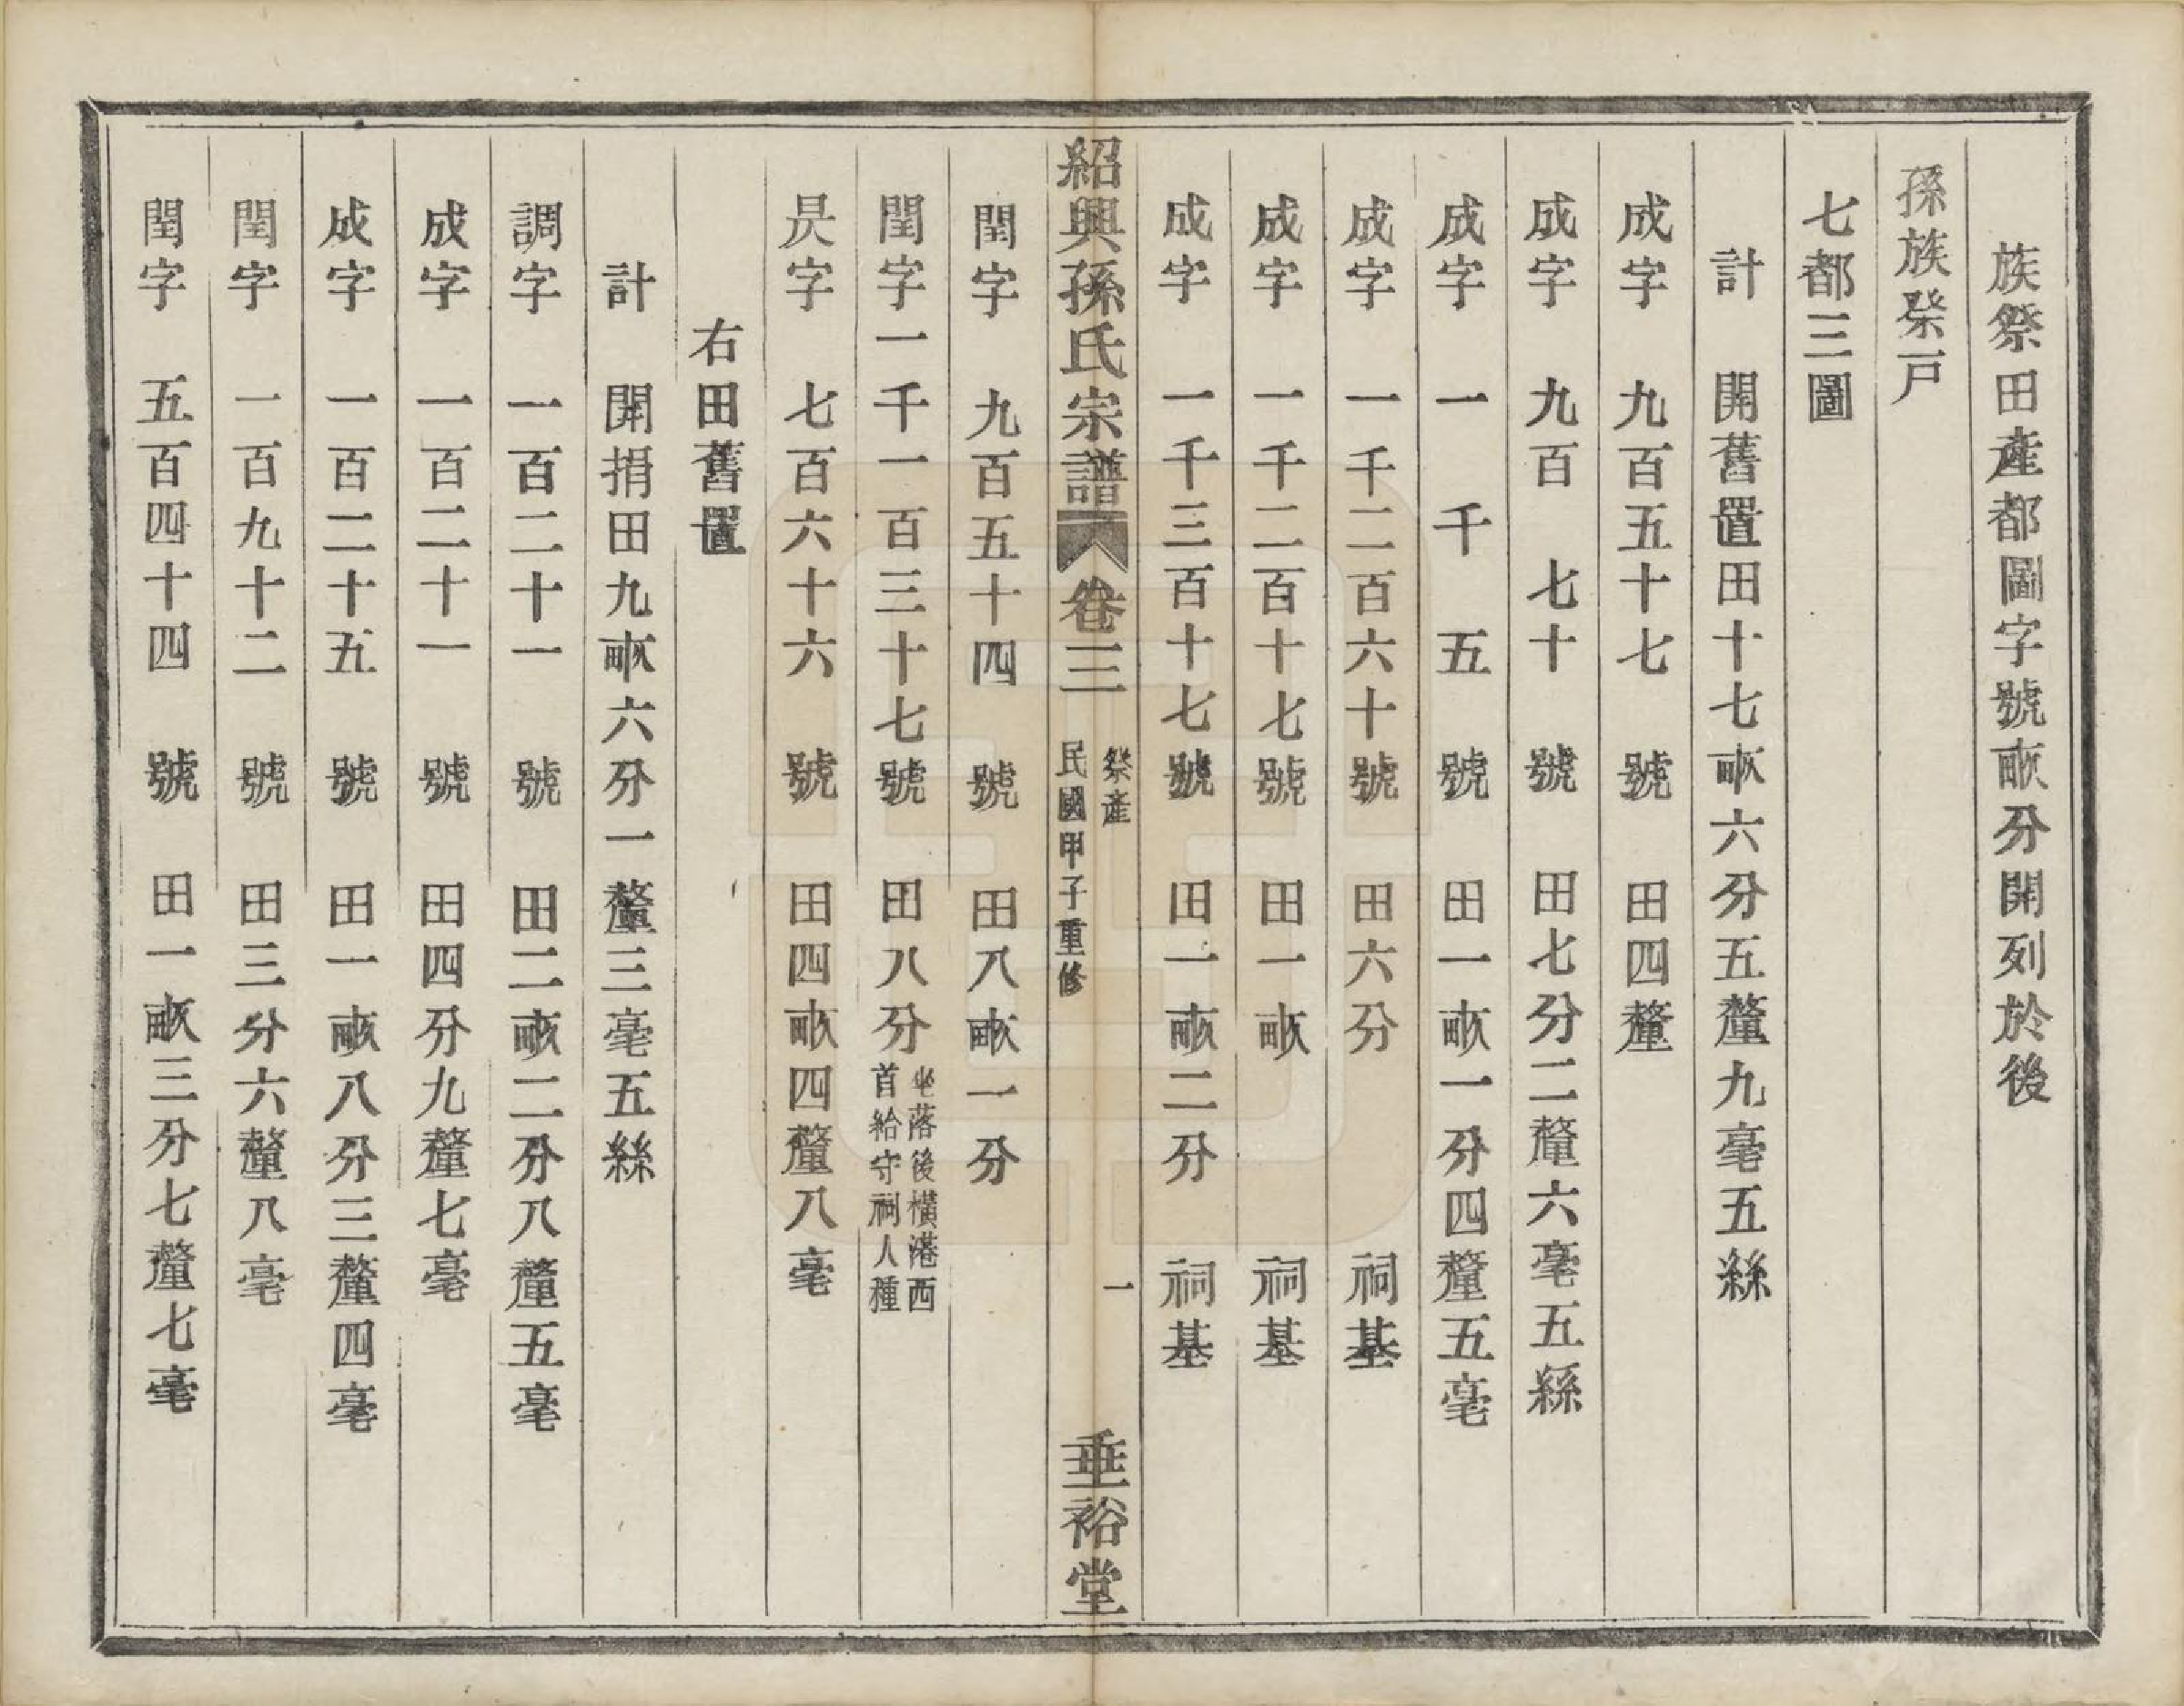 族祭田產都圖字號畝分開列於後
孫族祭戸
七都三圖
計　開舊置田十七畝六分五釐九毫五絲
成字　九百五十七　號　田四釐
成字　九百　七十　號　田七分二釐六毫五絲
成字　一　千　五　號　田一畝一分四釐五毫
成字　一千二百六十號　田六分　祠基
成字　一千二百十七號　田一畝　祠基
成字　一千三百十七號　田一畝二分　祠基
紹興孫氏宗譜　卷三　祭產　民國甲子重修　一　垂裕堂
閏字　九百五十四　號　田八畝一分
閏字一千一百三十七號　田八分坐落後橫港西首給守祠人種
昃字　七百六十六　號　田四畝四釐八毫
右田舊置
計　開捐田九畝六分一釐三毫五絲
調字　一百二十一　號　田二畝二分八釐五毫
成字　一百二十一　號　田四分九釐七毫
成字　一百二十五　號　田一畝八分三釐四毫
閏字　一百九十二　號　田三分六釐八毫
閏字　五百四十四　號　田一畝三分七釐七毫